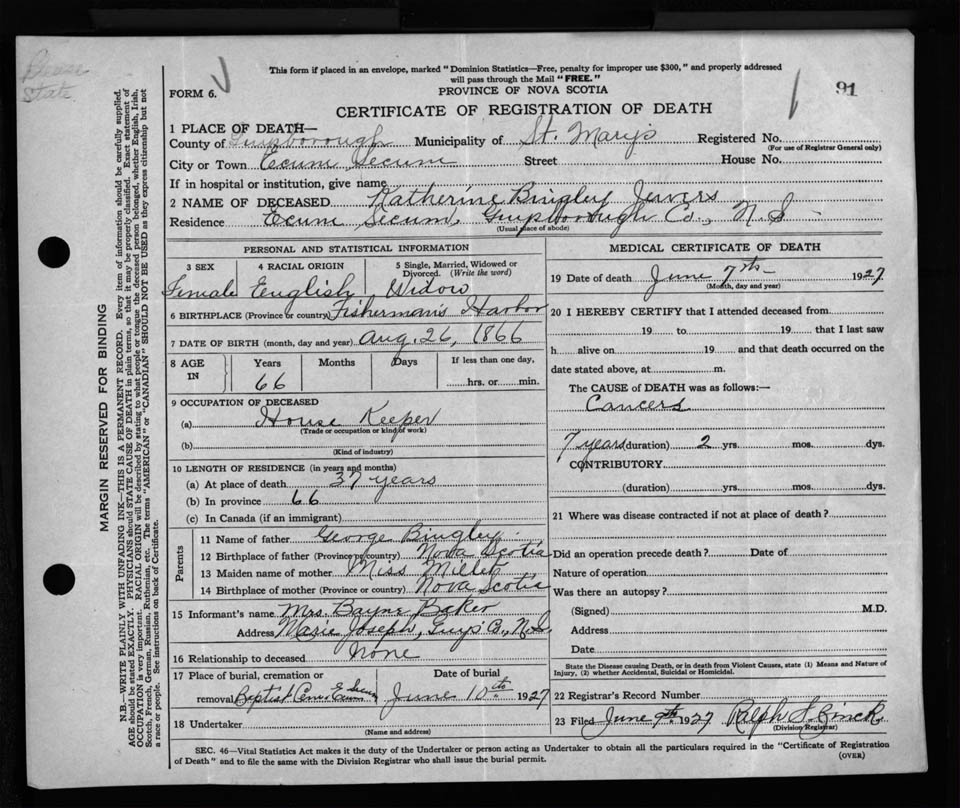 Please
State
This form if placed in an envelope, marked "Dominion Statistics—Free, penalty for improper use $300," and properly addressed
will pass through the Mail "FREE."
FORM 6.
PROVINCE OF NOVA SCOTIA
91
CERTIFICATE OF REGISTRATION OF DEATH
MARGIN RESERVED FOR BINDING
N.B.—WRITE PLAINLY WITH UNFADING INK—THIS IS A PERMANENT RECORD. Every item of information should be carefully supplied.
AGE should be stated EXACTLY. PHYSICIANS should STATE CAUSE OF DEATH in plain terms, so that it may be properly classified. Exact statement of
OCCUPATION is very important. RACIAL ORIGIN will be described by stating to what people or tongue the deceased person belonged, whether English, Irish,
Scotch, French, German, Russian, Ruthenian, etc. The terms "AMERICAN" or "CANADIAN" SHOULD NOT BE USED as they express citizenship but not
a race or people. See instructions on back of Certificate.
1 PLACE OF DEATH—
County of Guysborough Municipality of St. Mary's Registered No.
(For use of Registrar General only)
City or Town Ecum Secum Street House No.
If in hospital or institution, give name
2 NAME OF DECEASED Katherine Bingley Jewers
Residence Ecum Secum, Guysborough Co., N S
(Usual place of abode)
PERSONAL AND STATISTICAL INFORMATION
3 SEX 4 RACIAL ORIGIN 5 Single, Married, Widowed or
Divorced. (Write the word)
Female English Widow
6 BIRTHPLACE (Province or country) Fisherman's Harbor
7 DATE OF BIRTH (month, day and year) Aug. 26, 1866
8 AGE IN Years Months Days If less than one day,
66 hrs. or min.
9 OCCUPATION OF DECEASED
(a) House Keeper
(Trade or occupation or kind of work)
(b)
(Kind of industry)
10 LENGTH OF RESIDENCE (in years and months)
(a) At place of death 37 years
(b) In province 66
(c) In Canada (if an immigrant)
Parents
11 Name of father George Bingley
12 Birthplace of father (Province or country) Nova Scotia
13 Maiden name of mother Miss Miller
14 Birthplace of mother (Province or country) Nova Scotia
15 Informant's name Mrs. Bayne Baker
Address Marie Joseph, Guys Co., N.S.
16 Relationship to deceased None
17 Place of burial, cremation or Date of burial
removal Baptist Cem. Ecum Secum June 10th 1927
18 Undertaker
(Name and address)
MEDICAL CERTIFICATE OF DEATH
19 Date of death June 7th 1927
(Month, day and year)
20 I HEREBY CERTIFY that I attended deceased from
19 to 19 that I last saw
h alive on 19 and that death occurred on the
date stated above, at m.
The CAUSE of DEATH was as follows:—
Cancers
7 years (duration) 2 yrs. mos. dys.
CONTRIBUTORY
(duration) yrs. mos. dys.
21 Where was disease contracted if not at place of death?
Did an operation precede death? Date of
Nature of operation
Was there an autopsy?
(Signed) M.D.
Address
Date
State the Disease causing Death, or in death from Violent Causes, state (1) Means and Nature of
Injury, (2) whether Accidental, Suicidal or Homicidal.
22 Registrar's Record Number
23 Filed June 9th 1927 Ralph S.
(Division Registrar)
SEC. 46—Vital Statistics Act makes it the duty of the Undertaker or person acting as Undertaker to obtain all the particulars required in the "Certificate of Registration
of Death" and to file the same with the Division Registrar who shall issue the burial permit.
(OVER)